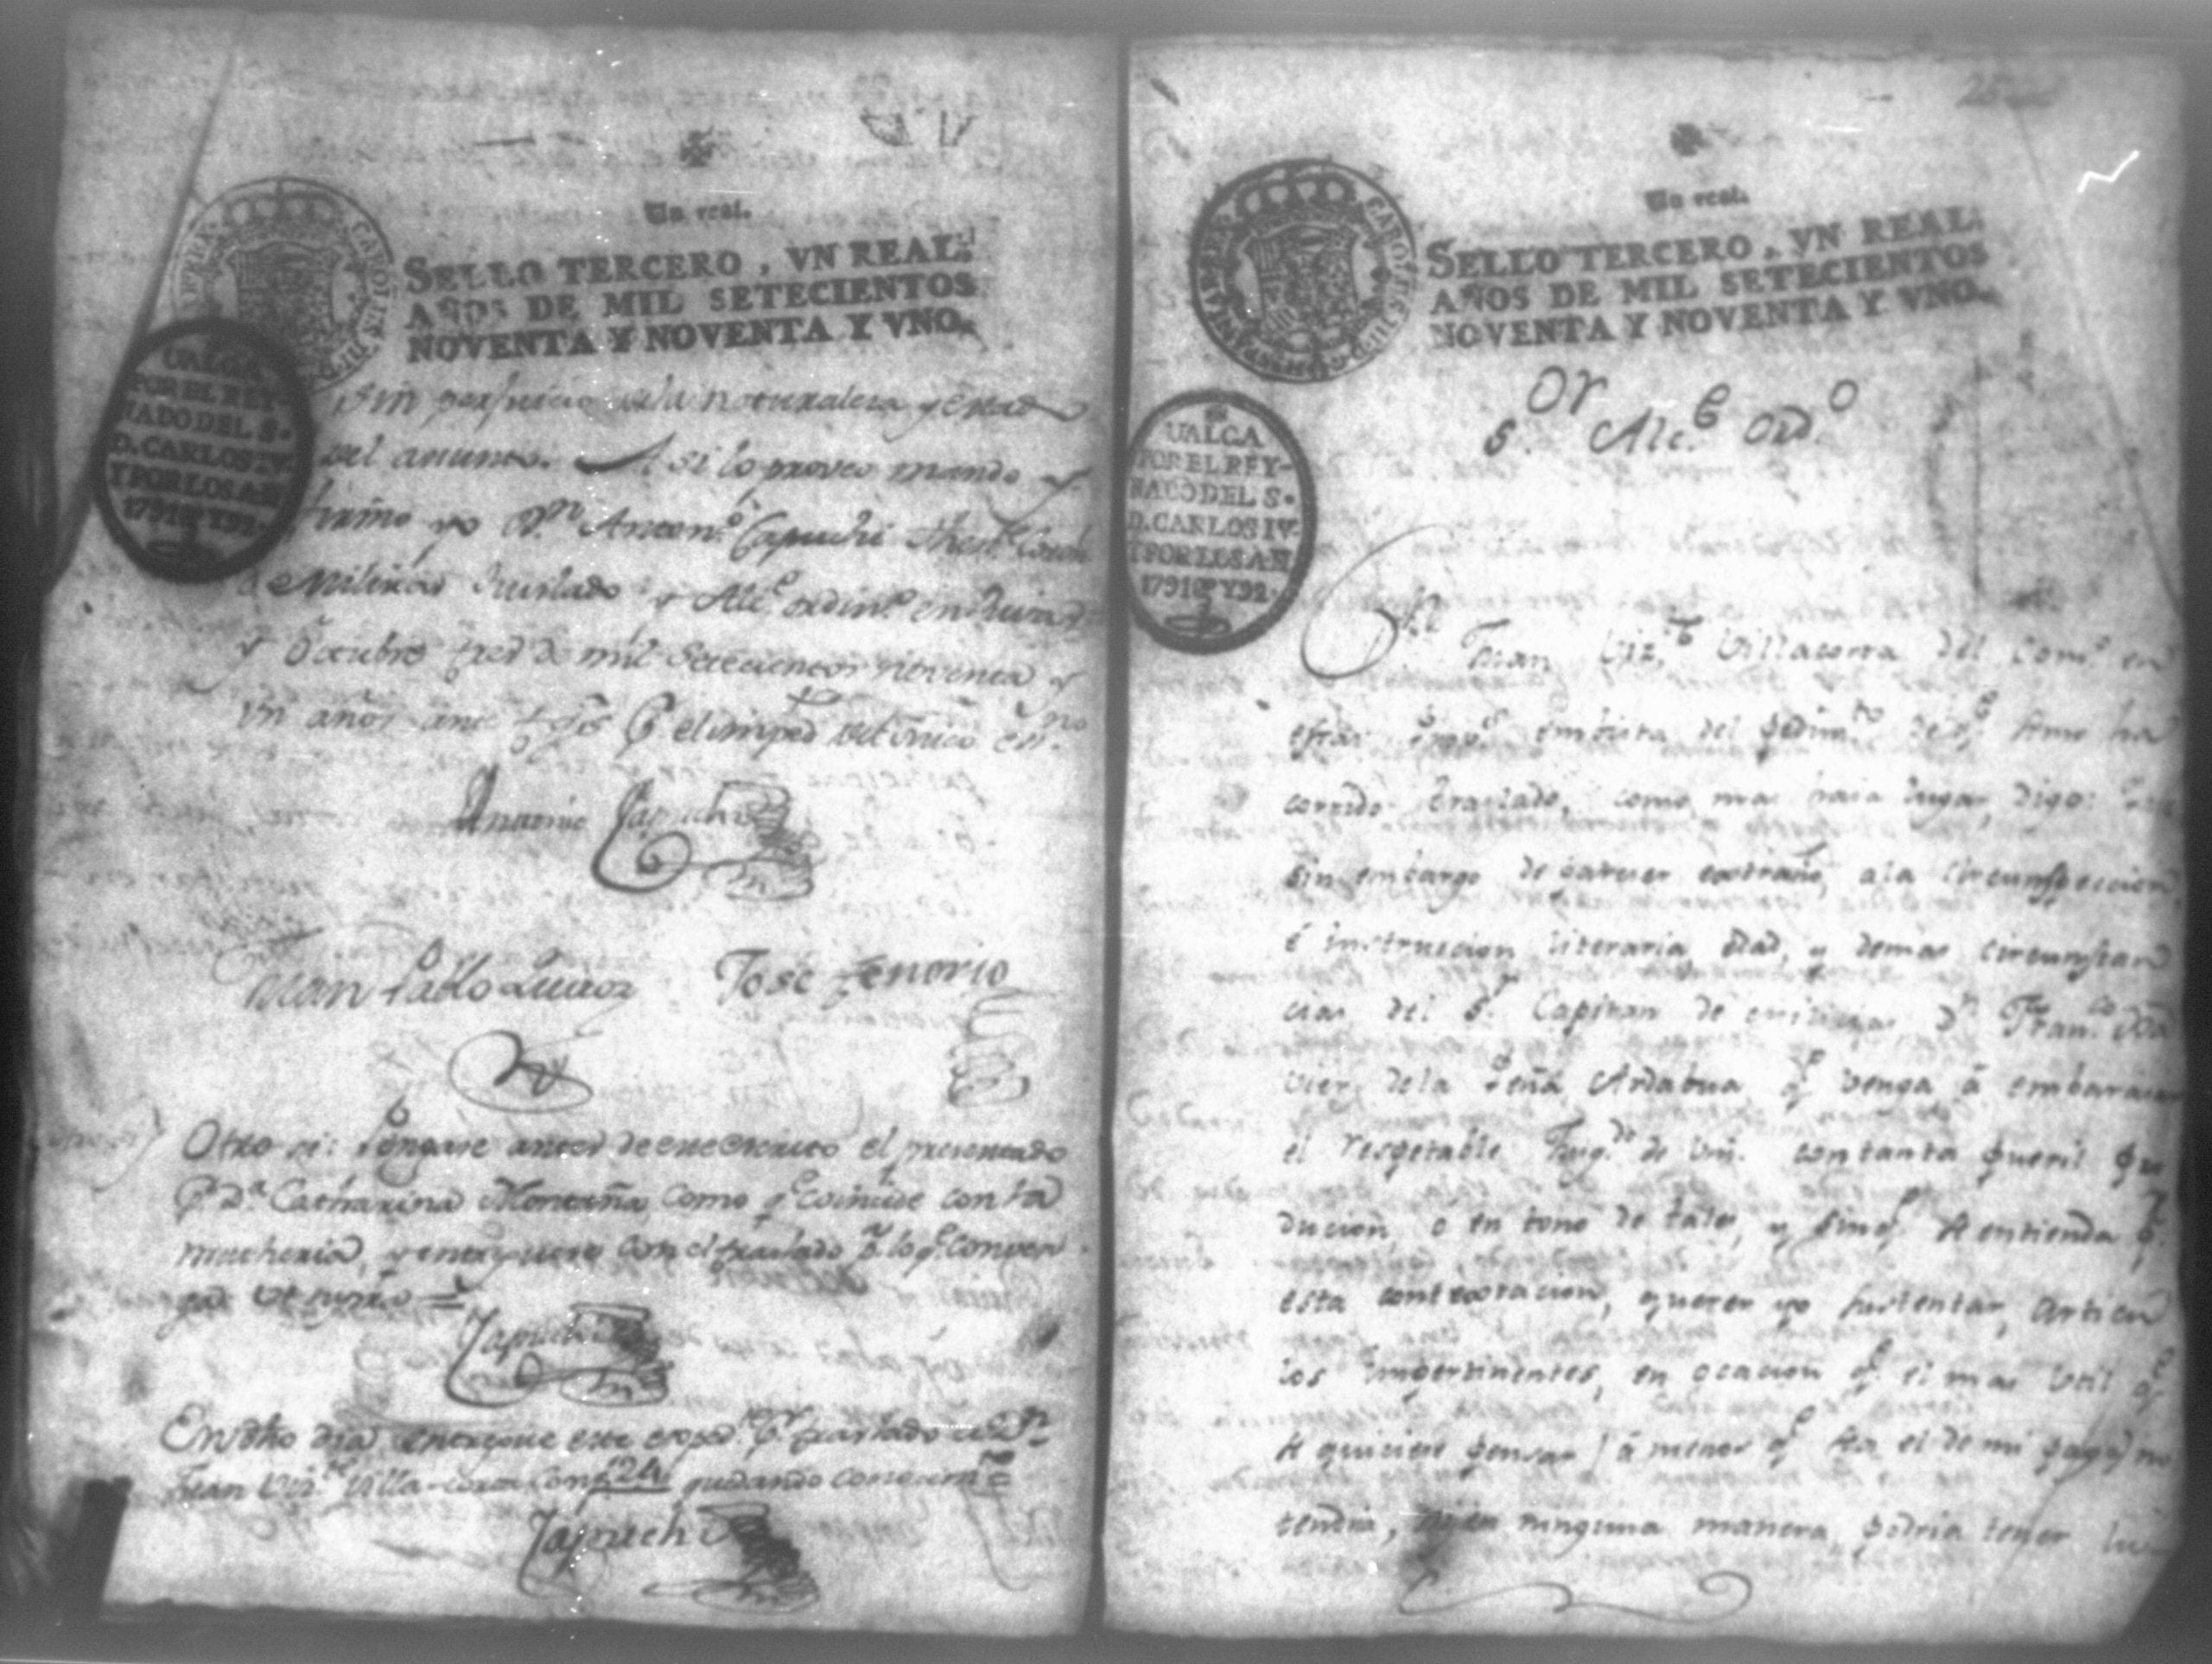 Un real.
SELLO TERCERO, VN REAL.
AÑOS DE MIL SETECIENTOS
NOVENTA Y NOVENTA Y VNO.
UALGA
POR EL REY-
NADO DEL S.
D. CARLOS IV.
Y POR LOS AN
1791 Y 92.
Sin perjuicio dela naturaleza y estado
del asunto. Asi lo proveo mando y
firmo yo Dn. Anton.o Capuchi
de Milicias y Alc.e ordin.o
y Octubre tres de mil setecientos noventa y
un años ante tgos
Antonio Capuchi
Juan Pablo Quiroz Jose Tenorio
Otro si: Pongase antes de este escrito el presentado
p.r D.a Catharina Montaña, como q.e coincide con la
mesma materia, y entreguese con el traslado p.a lo q.e conven
ga Ut supra =
Capuchi
En dho dia entregue este exped.te p.r traslado a Dn.
Juan Viz.te Villa-corta con f.s 24 quedando conocim.to
Capuchi
25
Un real.
SELLO TERCERO, VN REAL.
AÑOS DE MIL SETECIENTOS
NOVENTA Y NOVENTA Y VNO.
UALGA
POR EL REY-
NADO DEL S.
D. CARLOS IV.
Y POR LOS AN
1791 Y 92.
S.or Alc.e Ord.o
Dn Juan Viz.te Villacorta del Com.o en
esta Prov.a embista del pedim.to de q.e seme ha
corrido traslado, como mas haia lugar, Digo: Que
sin embargo de parecer extraño, ala circunspeccion,
é instruccion literaria edad, y demas circunstan
cias del S.r Capitan de milicias Dn Fran.co Xa
vier dela Peña Ardabua q.e venga á embarazar
el respetable Juzg.do de Vm. con tanta pueril pro
duccion, ó en tono de tales, y sin q.e se entienda p.r
esta contextacion, querer yo sustentar, articu
los impertinentes, en ocacion q.e el mas util q.e
se quiciese pensar (á menos q.e sea el de mi pago) no
tendria, ni en ninguna manera, podria tener lu